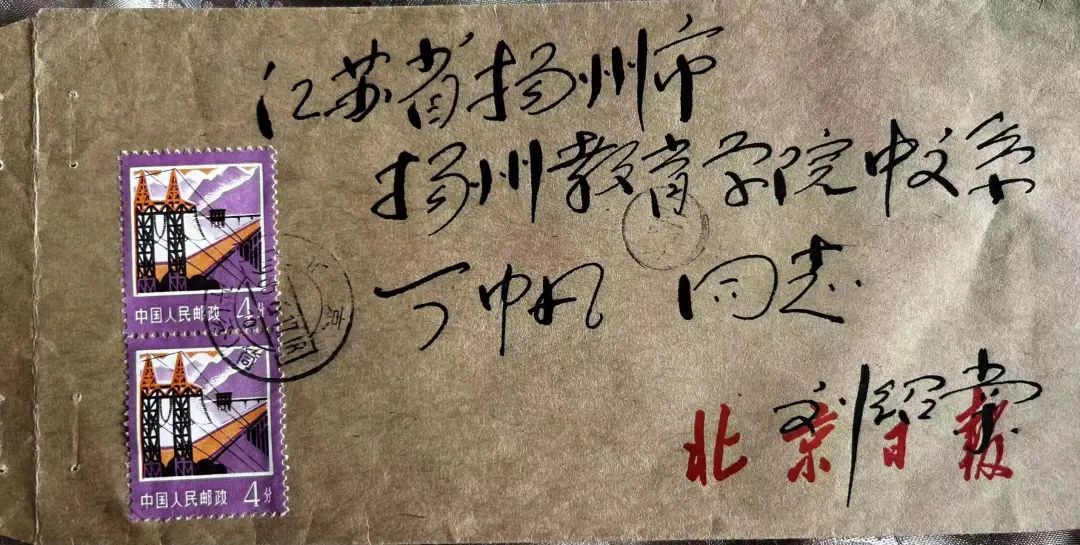 江苏省扬州市
扬州教育学院中文系
丁帆 同志
刘绍棠
北京日报
4分
中国人民邮政
4分
中国人民邮政
北京